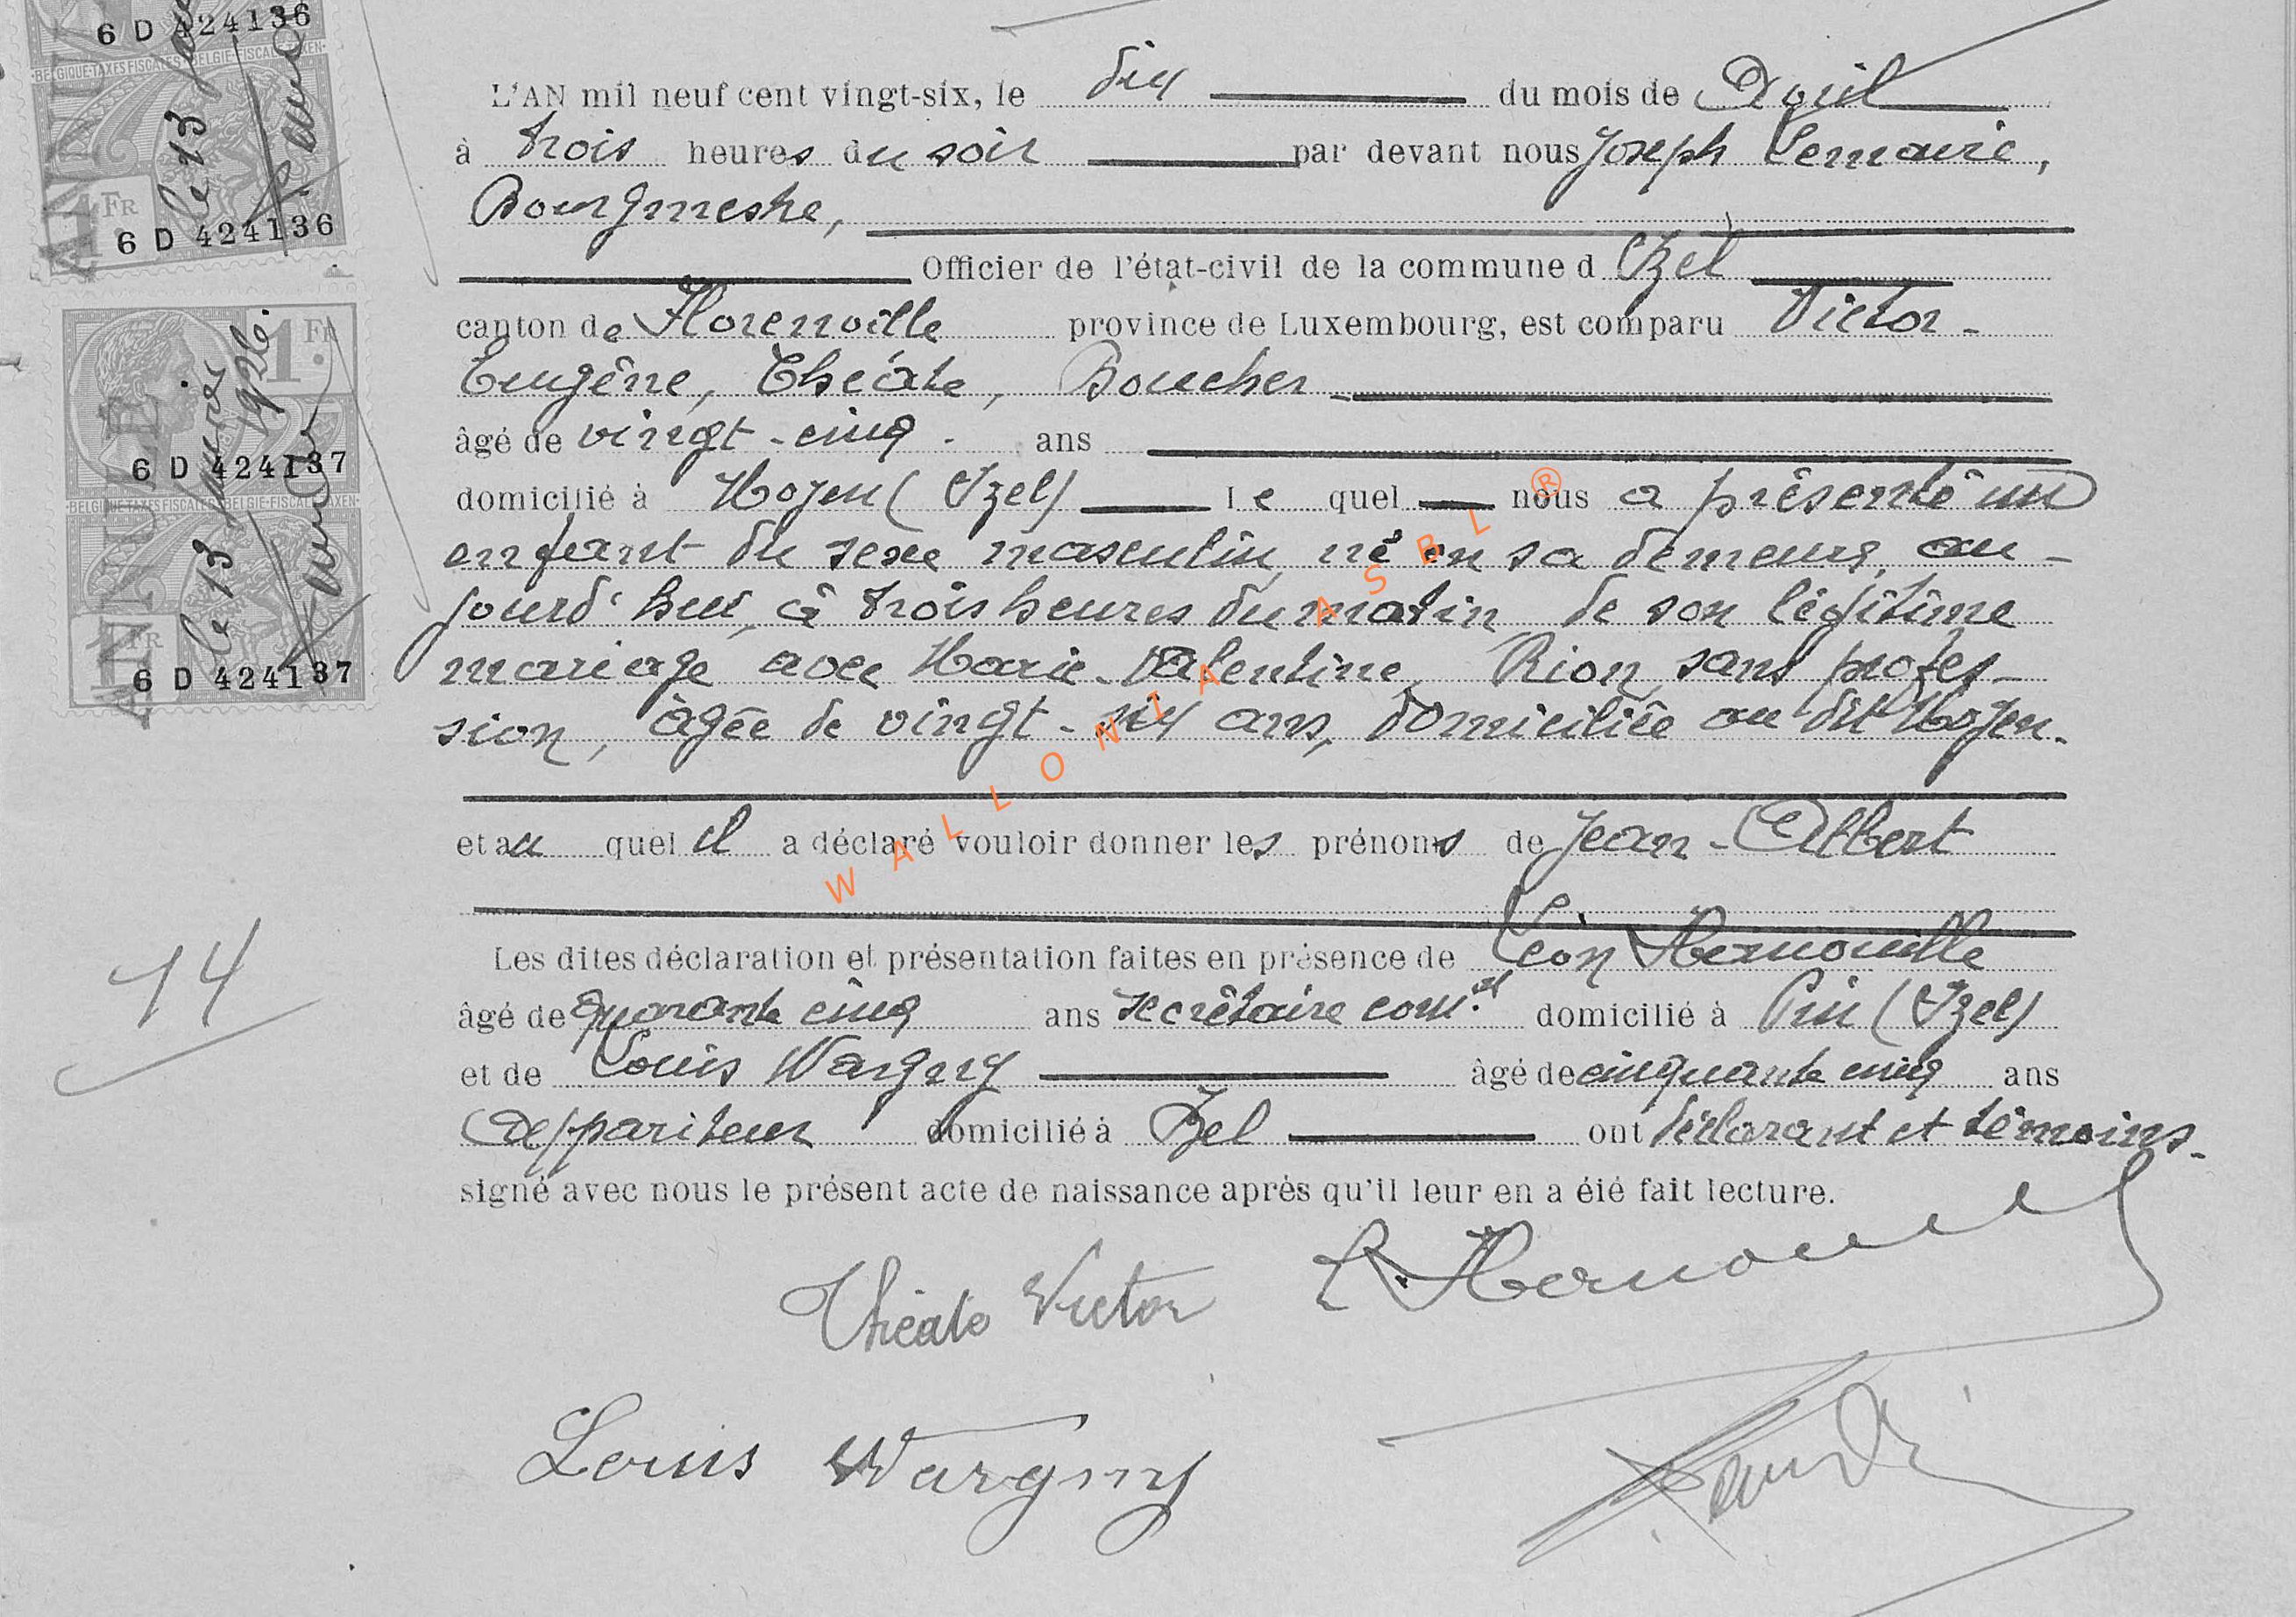 6 D 424136
BELGIQUE-TAXES FISCALES BELGIE-FISCALE TAXEN
1 FR
ANNULÉ
le 13
6 D 424136
1 FR
ANNULÉ
6 D 424137
BELGIQUE-TAXES FISCALES BELGIE-FISCALE TAXEN
le 13
1 FR
6 D 424137
L'AN mil neuf cent vingt-six, le dix du mois de Avril
à trois heures du soir par devant nous Joseph Lemaire,
Bourgmestre,
Officier de l'état-civil de la commune d Izel
canton de Florenville province de Luxembourg, est comparu Victor-
Eugène, Théâte, Boucher
âgé de vingt-cinq ans
domicilié à Moyen (Izel) le quel nous a présenté un
enfant du sexe masculin, né en sa demeure, au-
jourd'hui, à trois heures du matin de son légitime
mariage avec Marie-Valentine Rion, sans profes-
sion, âgée de vingt-six ans, domiciliée au dit Moyen.
et au quel il a déclaré vouloir donner les prénoms de Jean-Albert
Les dites déclaration et présentation faites en présence de Léon Hernouille
14
âgé de quarante cinq ans secrétaire com.al domicilié à Pin (Izel)
et de Louis Wargny âgé de cinquante cinq ans
appariteur domicilié à Izel ont déclarant et témoins-
signé avec nous le présent acte de naissance après qu'il leur en a été fait lecture.
Théate Victor L. Hernouille
Louis Wargny
WALLONIA ASBL ®